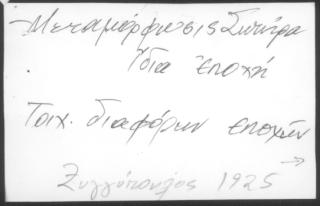 Μεταμόρφωσις Σωτήρα
Ἴδια ἐποχή
Τοιχ. διαφόρων ἐποχῶν
→
Ξυγγόπουλος 1925